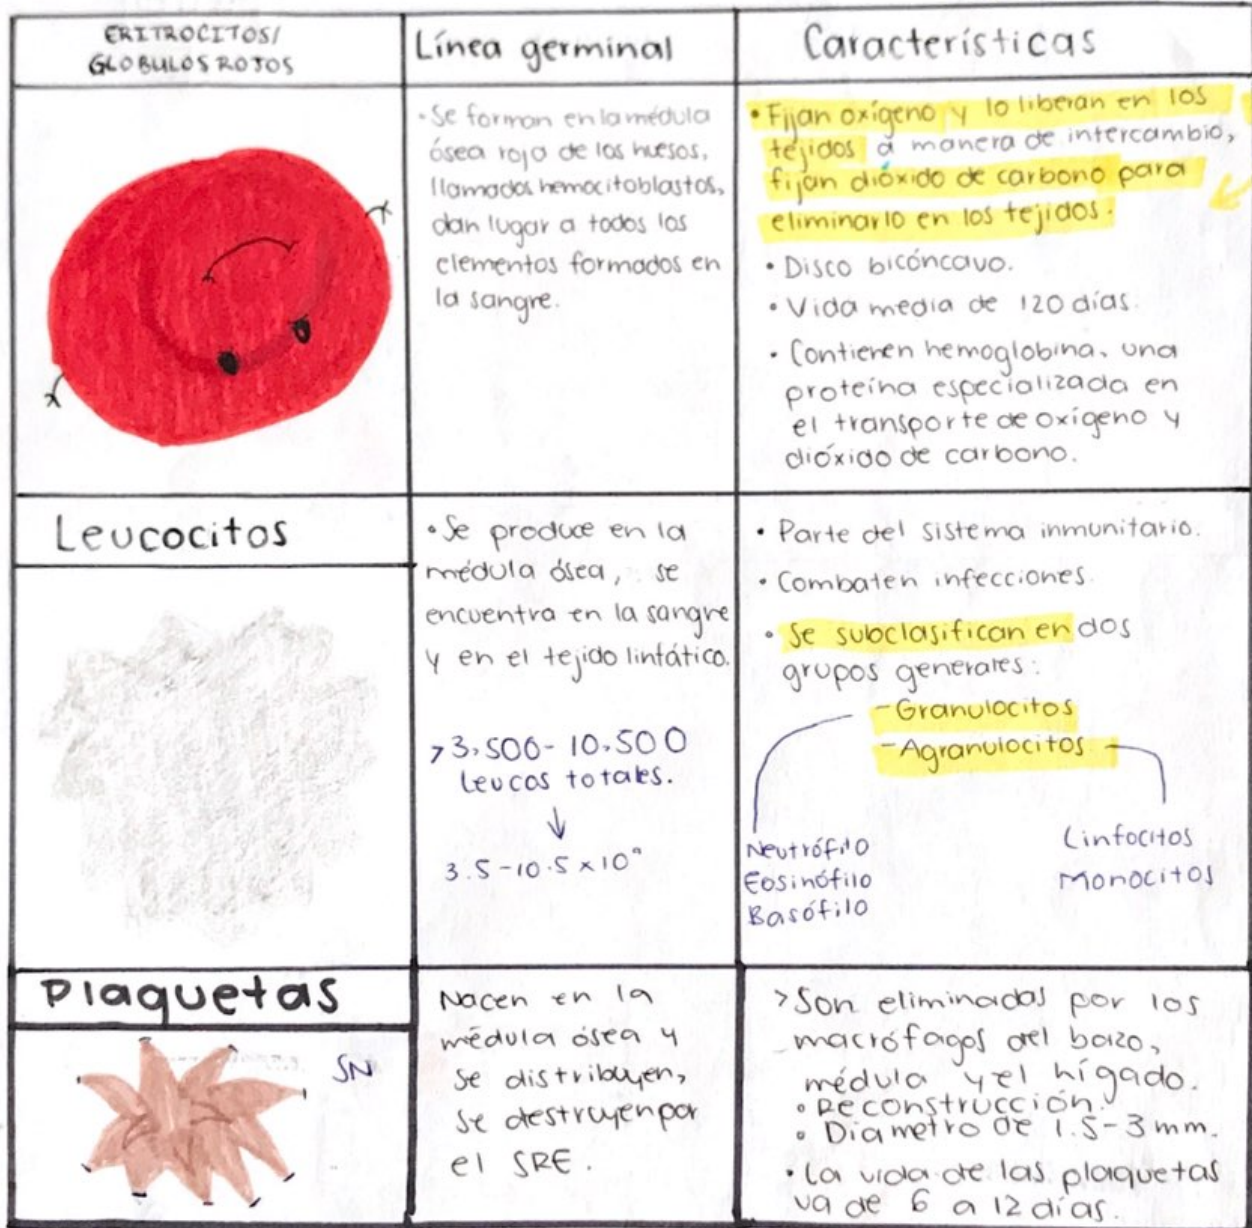 ERITROCITOS/
GLOBULOS ROJOS
Línea germinal
Características
• Se forman en la médula
ósea roja de los huesos,
llamados hemocitoblastos,
dan lugar a todos los
elementos formados en
la sangre.
• Fijan oxígeno y lo liberan en los
tejidos a manera de intercambio,
fijan dióxido de carbono para
eliminarlo en los tejidos.
• Disco bicóncavo.
• Vida media de 120 días.
• Contienen hemoglobina, una
proteína especializada en
el transporte de oxígeno y
dióxido de carbono.
Leucocitos
• Se produce en la
médula ósea, se
encuentra en la sangre
y en el tejido linfático.
> 3,500 - 10,500
leucos totales.
↓
3.5 - 10.5 x 10⁹
• Parte del sistema inmunitario.
• Combaten infecciones.
• Se subclasifican en dos
grupos generales:
- Granulocitos
- Agranulocitos
Neutrófilo
Eosinófilo
Basófilo
Linfocitos
Monocitos
Plaquetas
SN
Nacen en la
médula ósea y
se distribuyen,
se destruyen por
el SRE.
> Son eliminadas por los
macrófagos del bazo,
médula y el hígado.
• Reconstrucción.
• Diametro de 1.5-3 mm.
• La vida de las plaquetas
va de 6 a 12 días.